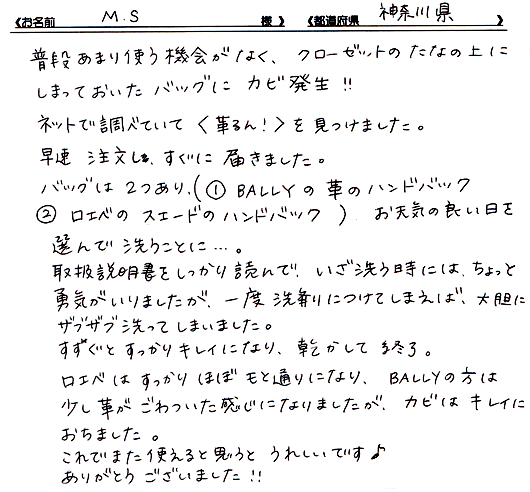 《お名前 M.S 様》《都道府県 神奈川県 》
普段あまり使う機会がなく、クローゼットのたなの上に
しまっておいたバッグにカビ発生!!
ネットで調べていて〈革るん!〉を見つけました。
早速注文し、すぐに届きました。
バッグは2つあり、(① BALLYの革のハンドバック
② ロエベのスエードのハンドバック) お天気の良い日を
選んで洗うことに…。
取扱説明書をしっかり読んで、いざ洗う時には、ちょっと
勇気がいりましたが、一度洗剤につけてしまえば、大胆に
ザブザブ洗ってしまいました。
すすぐとすっかりキレイになり、乾かして終了。
ロエベはすっかりほぼもと通りになり、BALLYの方は
少し革がごわついた感じになりましたが、カビはキレイに
おちました。
これでまた使えると思うとうれしいです♪
ありがとうございました!!